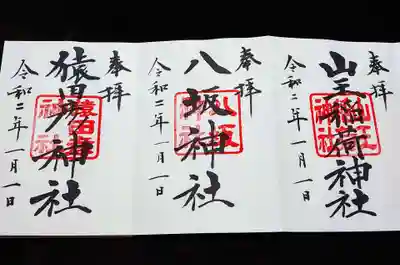 奉拝
山王稲荷神社
令和二年一月一日
奉拝
八坂神社
令和二年一月一日
奉拝
猿 神社
令和二年一月一日